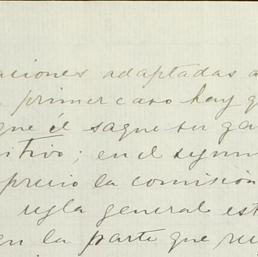 aciones adaptadas a
primer caso hay q
que él saque su ga
sitivo; en el segun
precio la comisión
regla general est
en la parte que